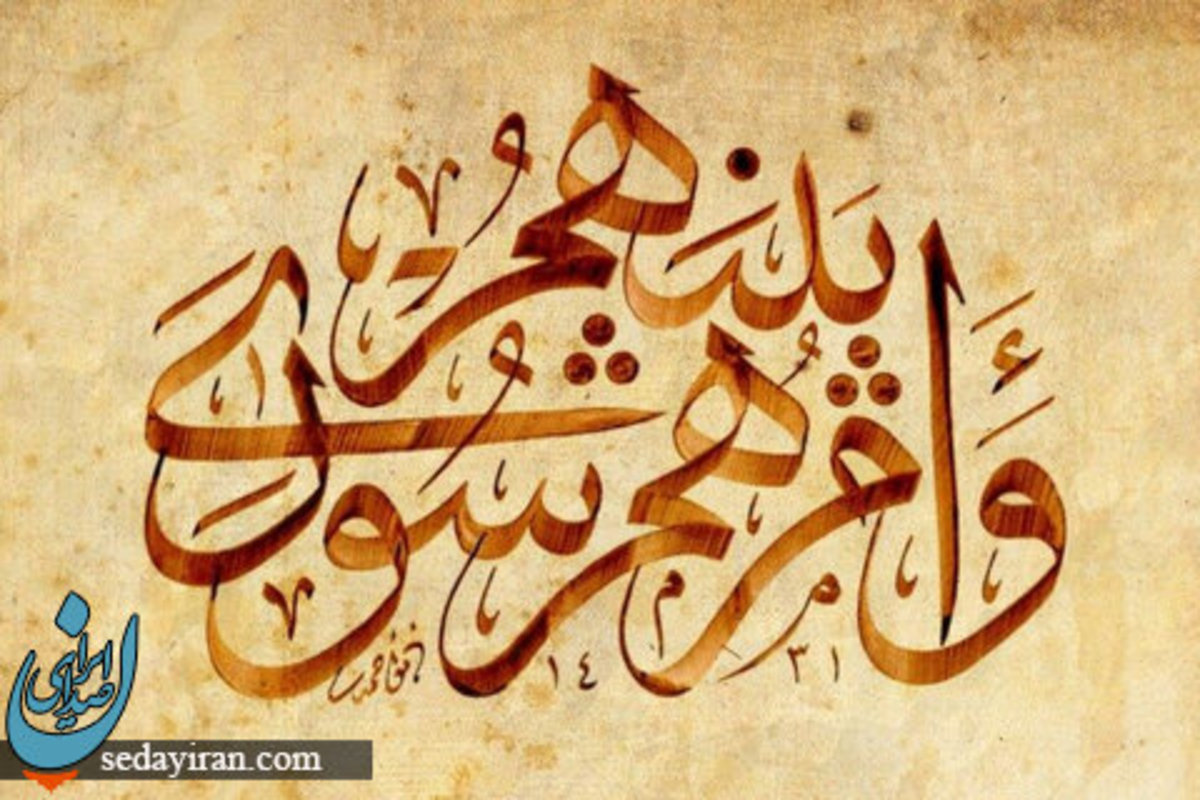 وَأَمْرُهُمْ شُورَىٰ بَيْنَهُمْ
١٤٣١
صدای ایران
sedayiran.com